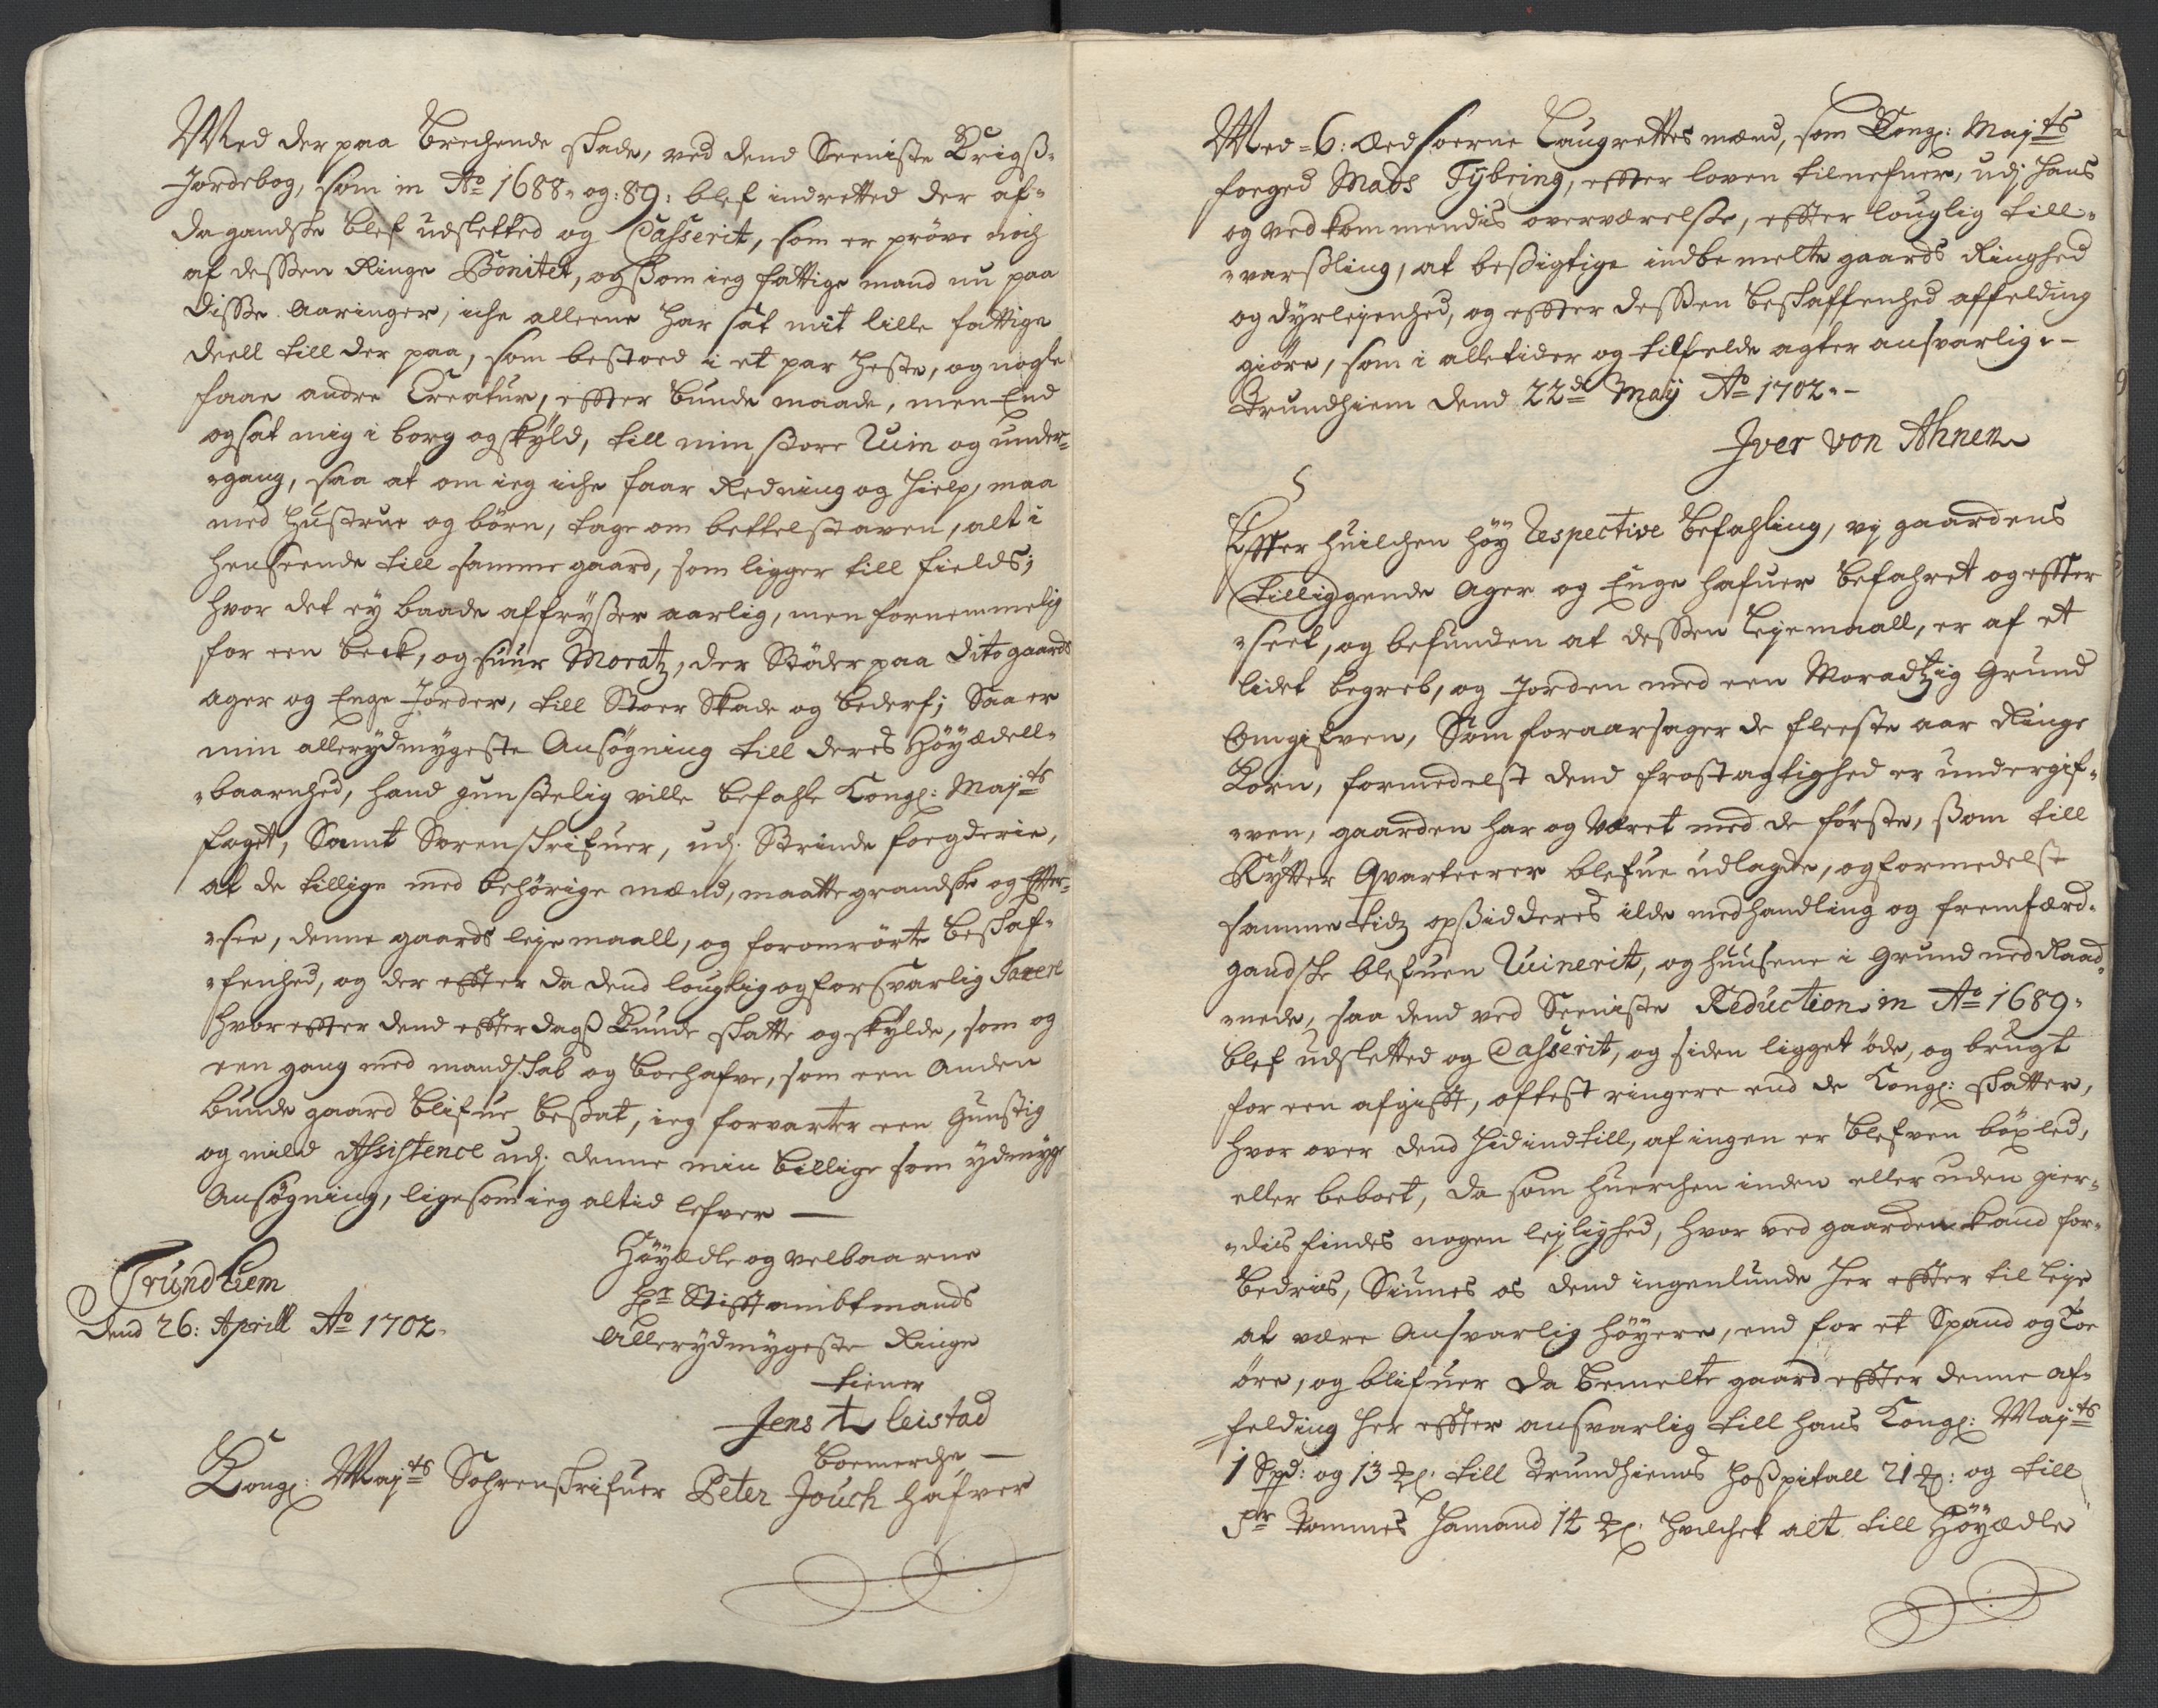 Med der paa brechende skade, ved dend Seeniste Krigs-
Jordebog, som in Ao 1688 og: 89: blef indretted der af-
da gandske blef udsletted og Casserit, som er prøve noch
af dessen Ringe Bonitet, og som ieg fattige mand nu paa
disse Aaringer, iche alleene har sat mit lille fattige
deell till der paa, som bestoed i et par heste, og nogle
faae andre Creatur, effter bunde maade, men End
og sat mig i borg og skyld, till min store Ruin og under-
gang, saa at om ieg iche faar Redning og hielp, maa
med hustrue og børn, tage om bettelstaven, alt i
henseende till samme gaard, som ligger till fields;
hvor det ey baade affryser aarlig, men fornemmelig
for een beck, og suur Moratz, der støder paa dito gaards
ager og Enge Jorder, till stoer Skade og bederf; Saa er
min allerydmygeste Ansøgning till deres Høyædell-
baarnhed, hand gunstelig ville befahle Kongl: Majts
foget, Samt Sorenskrifuer, udj. Strinde foegderie,
at de tillige med behørige mænd, maatte grandske og effter-
see, denne gaards leyemaall, og foromrørte beskaf-
fenhed, og der effter da dend louglig og forsvarlig Taxere
hvor effter dend effterdags kunde skatte og skylde, som og
een gang med mandskab og boehafve, som een Anden
bunde gaard blifue besat, ieg forvarter een Gunstig
og mild Assistence udj. denne min billige som ydmyge
Ansøgning, lige som ieg altid lefver —
Trundhiem
Dend 26: Aprill Ao 1702.
Høyædle og velbaarne
Hr Stifftambtmands
Allerydmygeste Ringe
tiener
Jens Leistad
boemerche —
Kongl: Majts Sohrenskrifuer Peter Jouch hafver
Med 6: Eedsoerne Laugrettes mænd, som Kongl: Majts
foeged Mads Tybring, effter loven tilnefner, udj hans
og vedkommendis overværelse, effter louglig till-
varsling, at besigtige indbemelte gaards Ringhed
og dyrlejenhed, og effter dessen beskaffenhed affelding
giøre, som i alle tider og tilfelde agter ansvarlig. —
Trundhiem dend 22de Maij Ao 1702. —
Iver von Ahnen
Effter huilchen høy Respective befahling, vj gaardens
tilliggende Ager og Enge hafuer befahret og effter-
seet, og befunden at dessen leyemaall, er af et
lidet begreb, og jorden med een Moradtzig Grund
Omgifven, Som foraarsager de fleeste aar Ringe
Korn, formedelst dend frostagtighed er undergif-
ven, gaarden har og Været med de første, som till
Rytter Qvarteerer blefue udlagde, og formedelst
samme tidz opsidderes ilde medhandling og fremfærd
gandske blefuen Ruinerit, og huusene i Grund ned Raad-
nede, saa dend ved Seeniste Reduction in Ao 1689
blef udsletted og Casserit, og siden ligget øde, og brugt
for een afgifft, oftest ringere end de Kongl: skatter,
hvor over dend hidindtill, af ingen er blefven bøxled,
eller beboet, da som huerchen inden eller uden gier-
dis findes nogen lejlighed, hvor ved gaarden kand for-
bedris, Siunes os dend ingenlunde her effter til leye
at være Ansvarlig høyere, end for et Spand og Toe
øre, og blifuer da bemelte gaard effter denne af-
felding her effter ansvarlig till hans Kongl: Majts
1 Spd: og 13 Ml: till Trundhiems Hospitall 21 Ml: og till
Sr Tommes Hamand 14 Ml: hvilchet alt till Høyædle